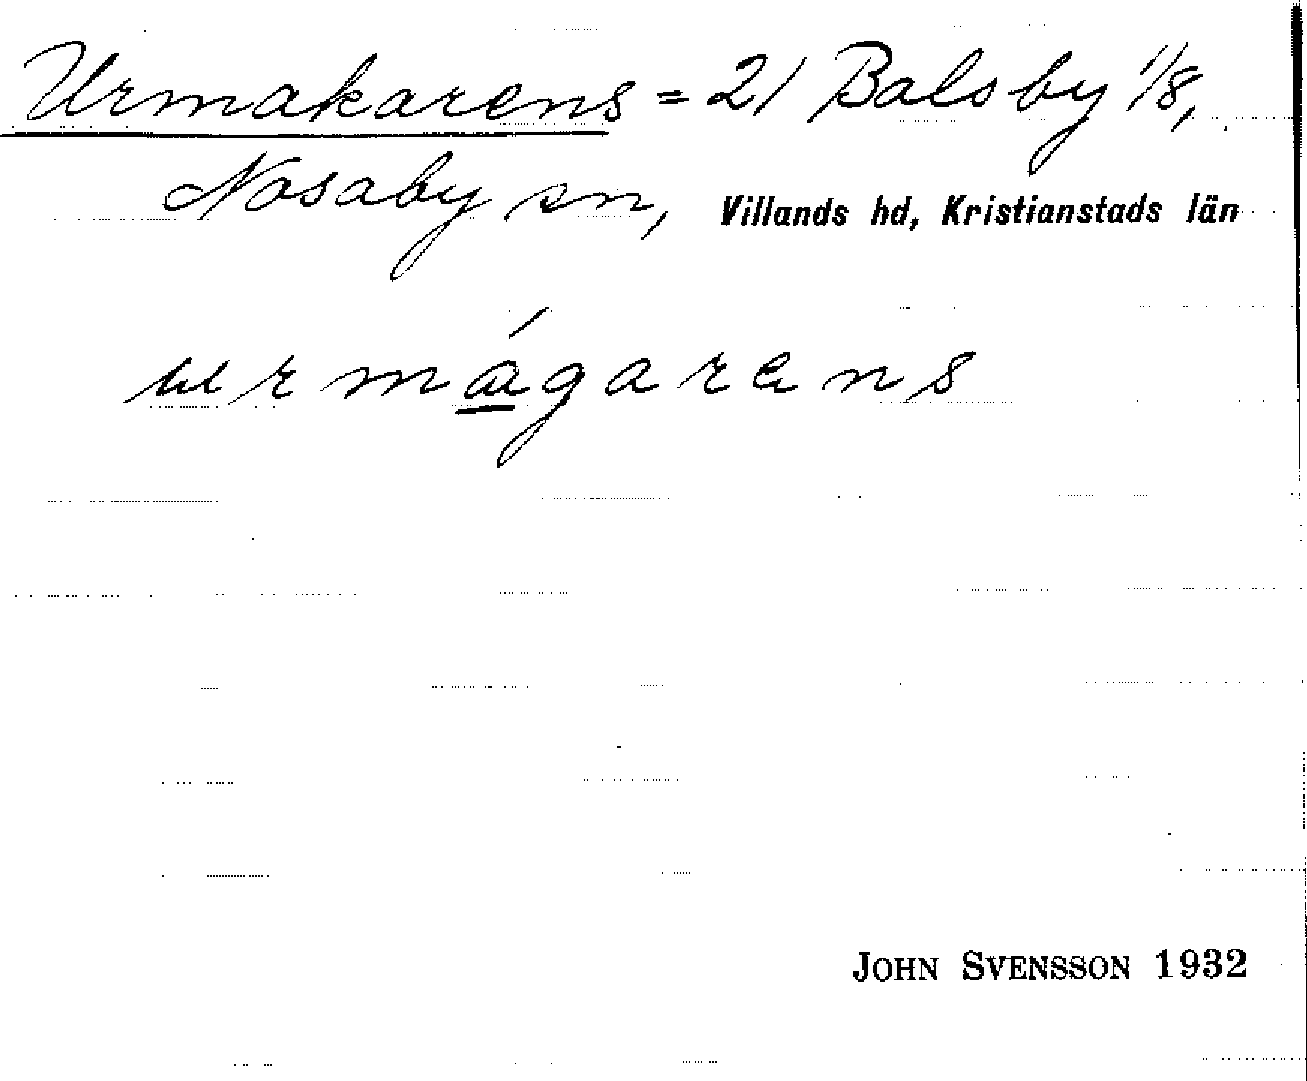 Urmakarens = 21 Balsby 1/8,
Nosaby sn, Villands hd, Kristianstads län
urmágarens
JOHN SVENSSON 1932